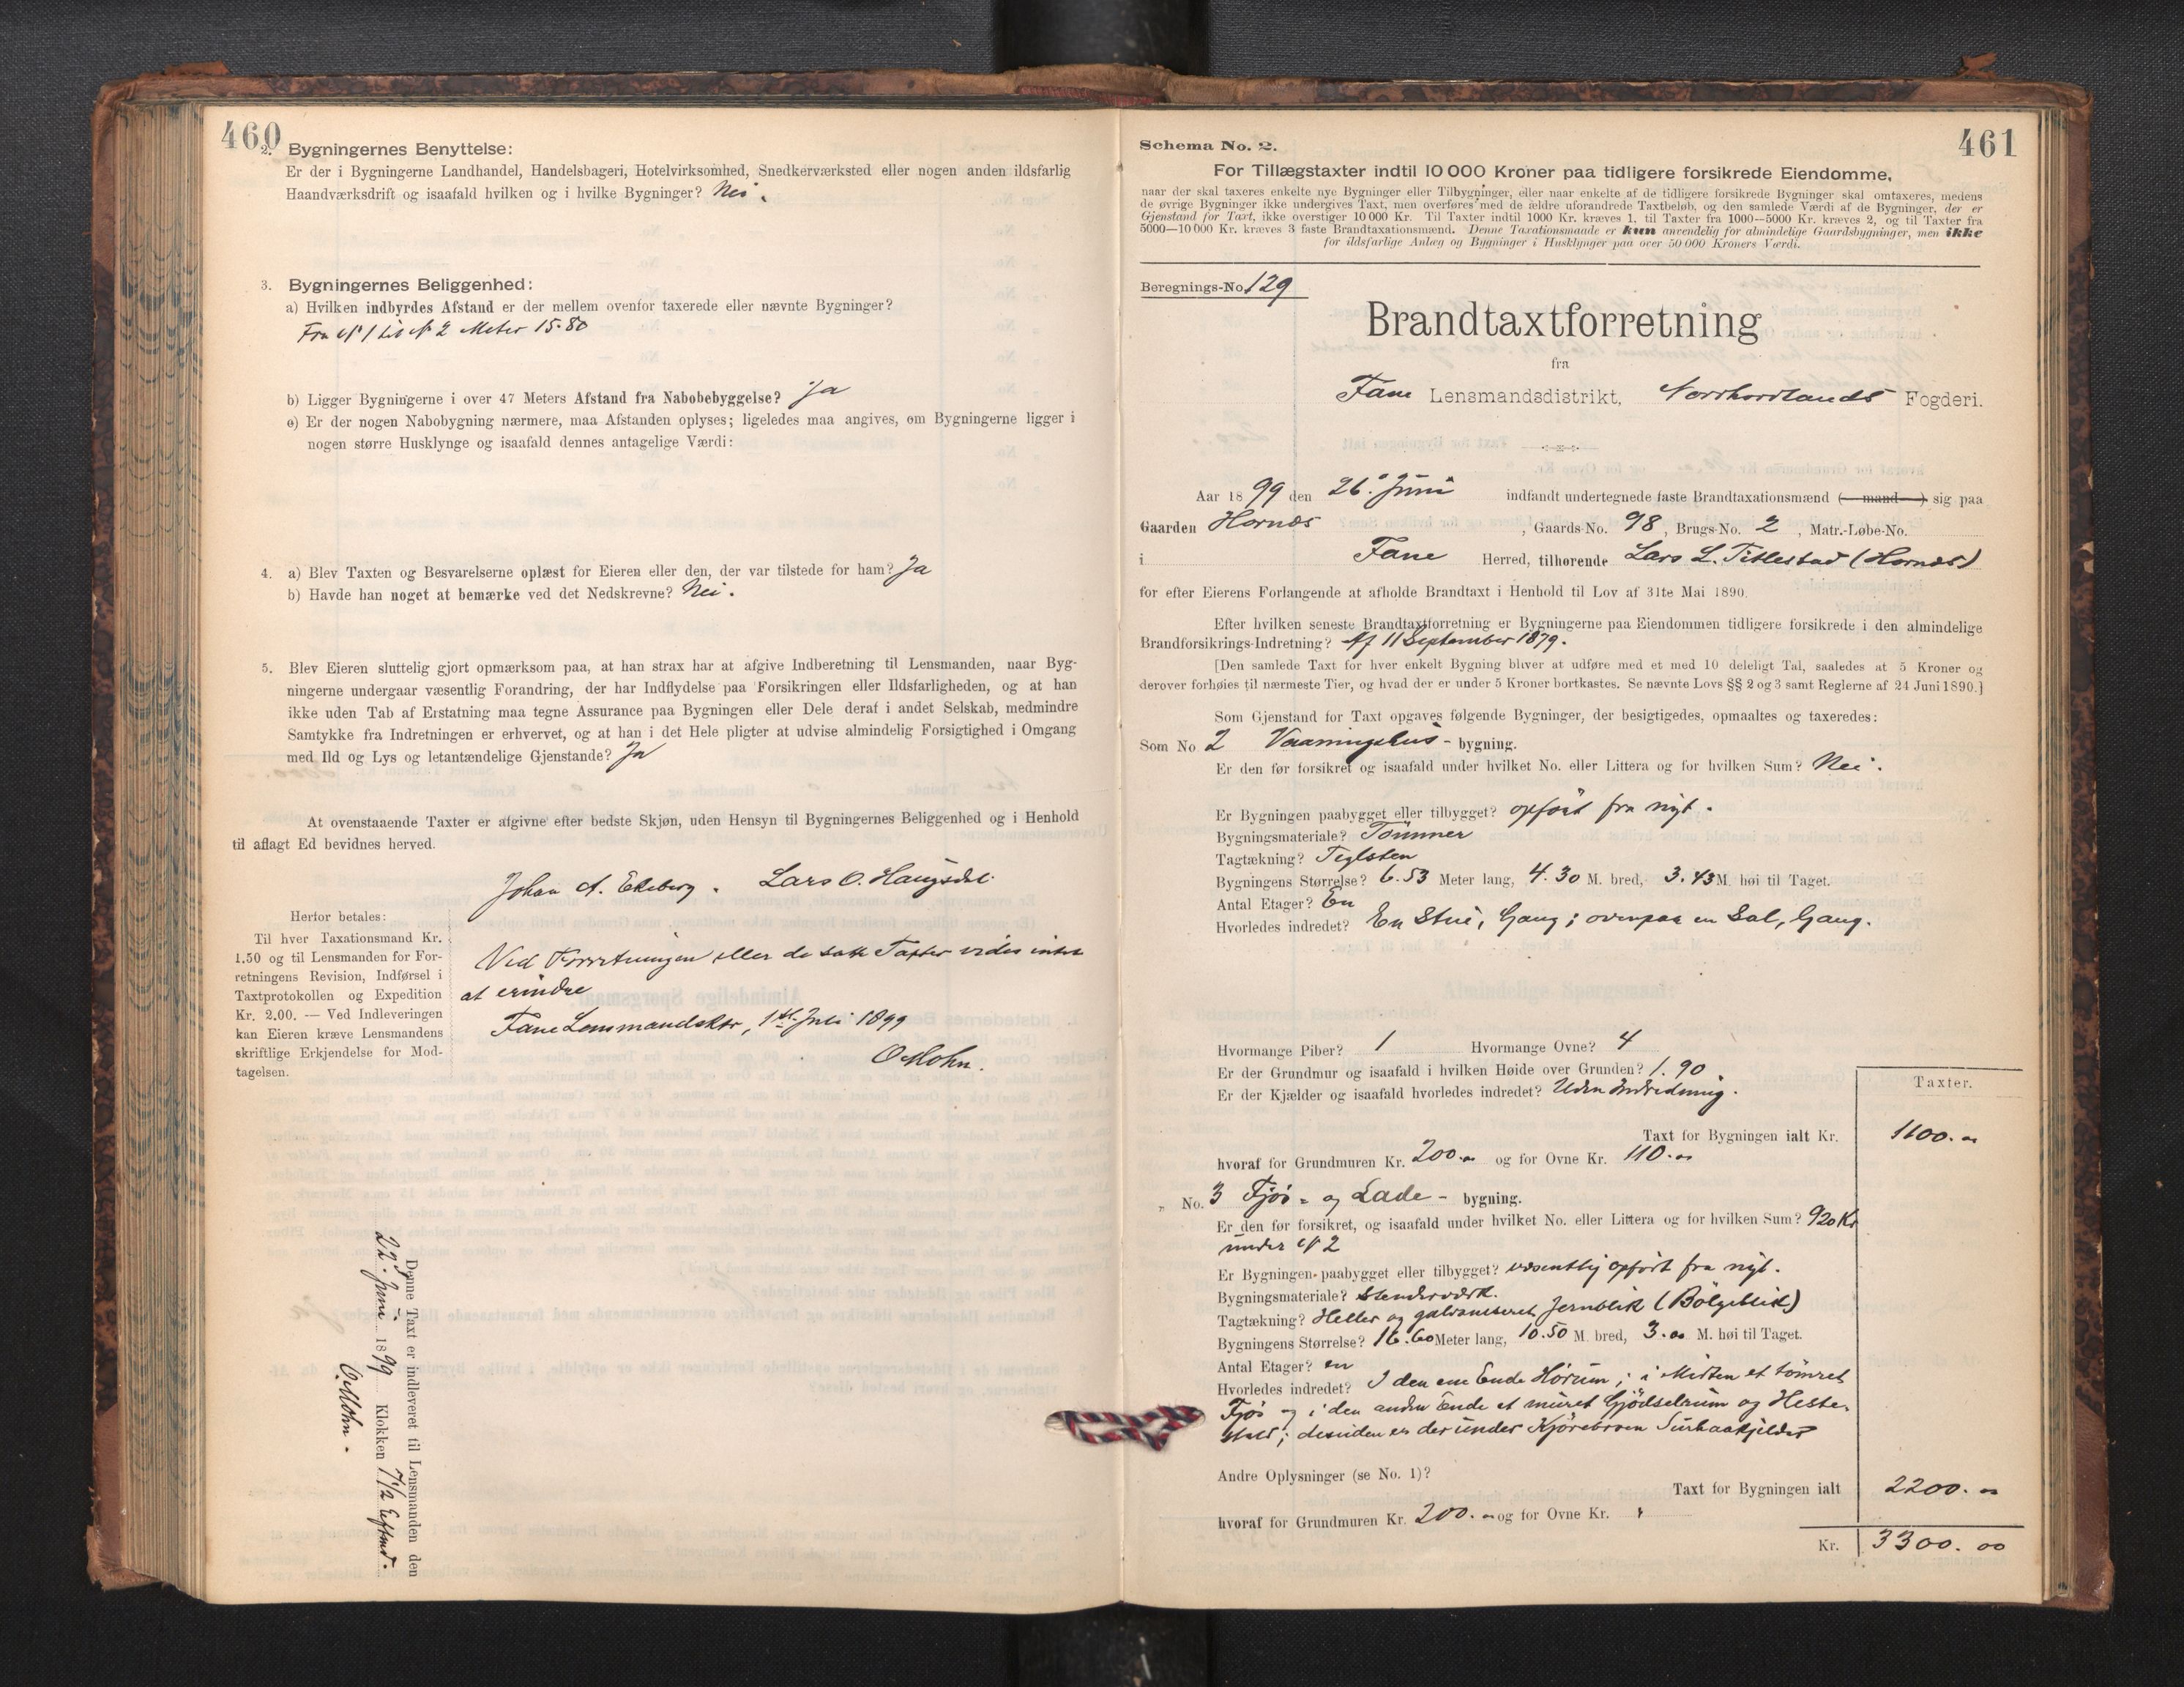 460
2. Bygningernes Benyttelse:
Er der i Bygningerne Landhandel, Handelsbageri, Hotelvirksomhed, Snedkerværksted eller nogen anden ildsfarlig
Haandværksdrift og isaafald hvilken og i hvilke Bygninger? Nei.
3. Bygningernes Beliggenhed:
a) Hvilken indbyrdes Afstand er der mellem ovenfor taxerede eller nævnte Bygninger?
Fra No 1 til No 2 Meter 15.80
b) Ligger Bygningerne i over 47 Meters Afstand fra Nabobebyggelse? Ja
c) Er der nogen Nabobygning nærmere, maa Afstanden oplyses; ligeledes maa angives, om Bygningerne ligger i
nogen større Husklynge og isaafald dennes antagelige Værdi:
4. a) Blev Taxten og Besvarelserne oplæst for Eieren eller den, der var tilstede for ham? Ja
b) Havde han noget at bemærke ved det Nedskrevne? Nei.
5. Blev Eieren sluttelig gjort opmærksom paa, at han strax har at afgive Indberetning til Lensmanden, naar Byg-
ningerne undergaar væsentlig Forandring, der har Indflydelse paa Forsikringen eller Ildsfarligheden, og at han
ikke uden Tab af Erstatning maa tegne Assurance paa Bygningen eller Dele deraf i andet Selskab, medmindre
Samtykke fra Indretningen er erhvervet, og at han i det Hele pligter at udvise almindelig Forsigtighed i Omgang
med Ild og Lys og letantændelige Gjenstande? Ja
At ovenstaaende Taxter er afgivne efter bedste Skjøn, uden Hensyn til Bygningernes Beliggenhed og i Henhold
til aflagt Ed bevidnes herved.
Johan A. Ekeberg. Lars O. Haugsdal.
Herfor betales:
Til hver Taxationsmand Kr.
1.50 og til Lensmanden for For-
retningens Revision, Indførsel i
Taxtprotokollen og Expedition
Kr. 2.00. — Ved Indleveringen
kan Eieren kræve Lensmandens
skriftlige Erkjendelse for Mod-
tagelsen.
Ved Forretningen eller de satte Taxter vides intet
at erindre
Fane Lensmandsktr, 1ste Juli 1899
O Mohn.
Denne Taxt er indleveret til Lensmanden den
22. Juni 1899 Klokken 7 1/2 Eftmd.
O. Mohn.
461
Schema No. 2.
For Tillægstaxter indtil 10 000 Kroner paa tidligere forsikrede Eiendomme,
naar der skal taxeres enkelte nye Bygninger eller Tilbygninger, eller naar enkelte af de tidligere forsikrede Bygninger skal omtaxeres, medens
de øvrige Bygninger ikke undergives Taxt, men overføres med de ældre uforandrede Taxtbeløb, og den samlede Værdi af de Bygninger, der er
Gjenstand for Taxt, ikke overstiger 10 000 Kr. Til Taxter indtil 1000 Kr. kræves 1, til Taxter fra 1000—5000 Kr. kræves 2, og til Taxter fra
5000—10 000 Kr. kræves 3 faste Brandtaxationsmænd. Denne Taxationsmaade er kun anvendelig for almindelige Gaardsbygninger, men ikke
for ildsfarlige Anlæg og Bygninger i Husklynger paa over 50 000 Kroners Værdi.
Beregnings-No. 129
Brandtaxtforretning
fra
Fane Lensmandsdistrikt, Nordhordlands Fogderi.
Aar 1899 den 26. Juni indfandt undertegnede faste Brandtaxationsmænd (— mand —) sig paa
Gaarden Hornæs, Gaards-No. 98, Brugs-No. 2, Matr.-Løbe-No.
i Fane Herred, tilhørende Lars L. Titlestad (Hornæs)
for efter Eierens Forlangende at afholde Brandtaxt i Henhold til Lov af 31te Mai 1890.
Efter hvilken seneste Brandtaxtforretning er Bygningerne paa Eiendommen tidligere forsikrede i den almindelige
Brandforsikrings-Indretning? Af 11 September 1879.
[Den samlede Taxt for hver enkelt Bygning bliver at udføre med et med 10 deleligt Tal, saaledes at 5 Kroner og
derover forhøies til nærmeste Tier, og hvad der er under 5 Kroner bortkastes. Se nævnte Lovs §§ 2 og 3 samt Reglerne af 24 Juni 1890.]
Som Gjenstand for Taxt opgaves følgende Bygninger, der besigtigedes, opmaaltes og taxeredes:
Som No 2 Vaaningshus - bygning.
Er den før forsikret og isaafald under hvilket No. eller Littera og for hvilken Sum? Nei.
Er Bygningen paabygget eller tilbygget? opført fra nyt.
Bygningsmateriale? Tømmer
Tagtækning? Teglsten
Bygningens Størrelse? 6.53 Meter lang, 4.30 M. bred, 3.43 M. høi til Taget.
Antal Etager? En
Hvorledes indredet? En Stue, Gang; ovenpaa en Sal, Gang.
Hvormange Piber? 1 Hvormange Ovne? 4
Er der Grundmur og isaafald i hvilken Høide over Grunden? 1.90.
Er der Kjælder og isaafald hvorledes indredet? Uden Indredning.
Taxter.
Taxt for Bygningen ialt Kr. 1100.00
hvoraf for Grundmuren Kr. 200.00 og for Ovne Kr. 110.00
„ No. 3 Fjøs- og Lade - bygning.
Er den før forsikret, og isaafald under hvilket No. eller Littera og for hvilken Sum? 920 Kr
under No 2
Er Bygningen paabygget eller tilbygget? væsentlig opført fra nyt.
Bygningsmateriale? Stenderværk.
Tagtækning? Heller og galvaniseret Jernblik (Bølgeblik)
Bygningens Størrelse? 16.60 Meter lang, 10.50 M. bred, 3.00 M. høi til Taget.
Antal Etager? en
Hvorledes indredet? I den ene Ende Hørum; i Midten et tømret
Fjøs og i den anden Ende et muret Gjødselrum og Heste-
stald; desuden er der under Kjørebroen
Andre Oplysninger (se No. 1)?
Taxt for Bygningen ialt 2200.00
hvoraf for Grundmuren Kr. 200.00 og for Ovne Kr.
Kr. 3300.00